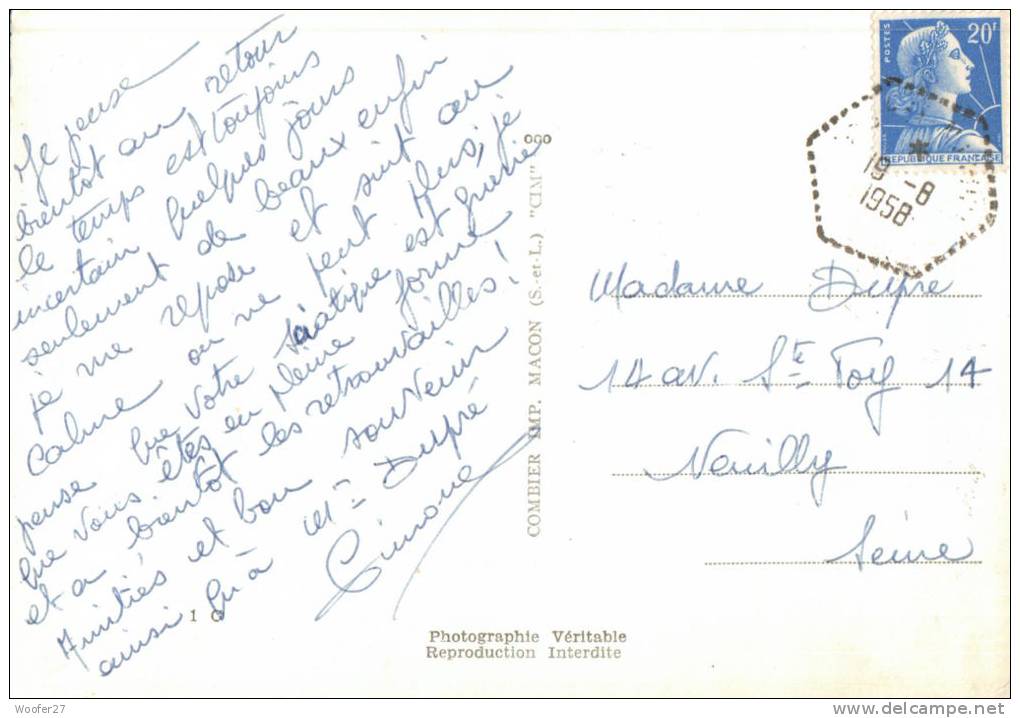 Je pense
bientôt au retour
le temps est toujours
incertain quelques jours
seulement de beaux enfin
je me repose et suis au
calme on ne peut plus, je
pense que votre sciatique est guérie
que vous êtes en pleine forme
et à bientôt les retrouvailles !
Amitiés et bon souvenir
ainsi qu'à Mr Dupré
Simone
1 C
COMBIER IMP. MACON (S.-et-L.) "CIM"
Photographie Véritable
Reproduction Interdite
POSTES
20F
REPUBLIQUE FRANÇAISE
19 -8
1958
Madame Dupré
14 av. Ste Foy 14
Neuilly
Seine
Woofer27
delcampe.net